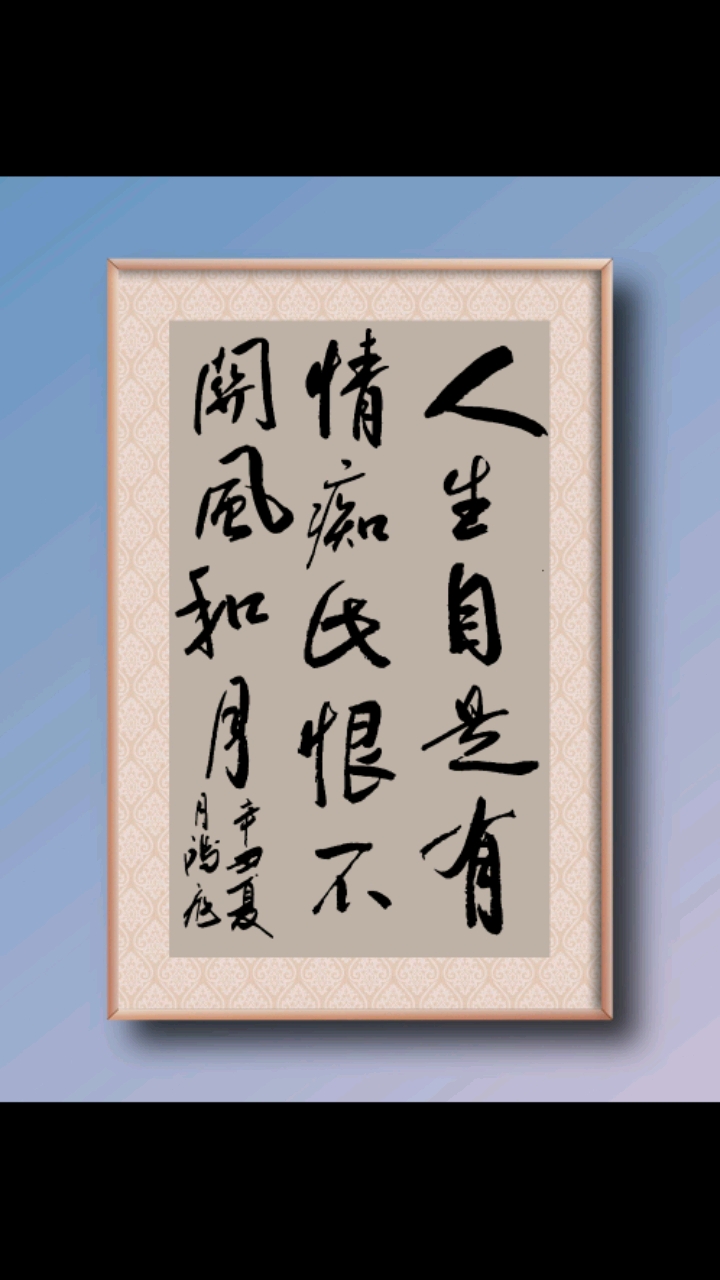 人生自是有
情痴此恨不
關風和月
辛丑夏
月